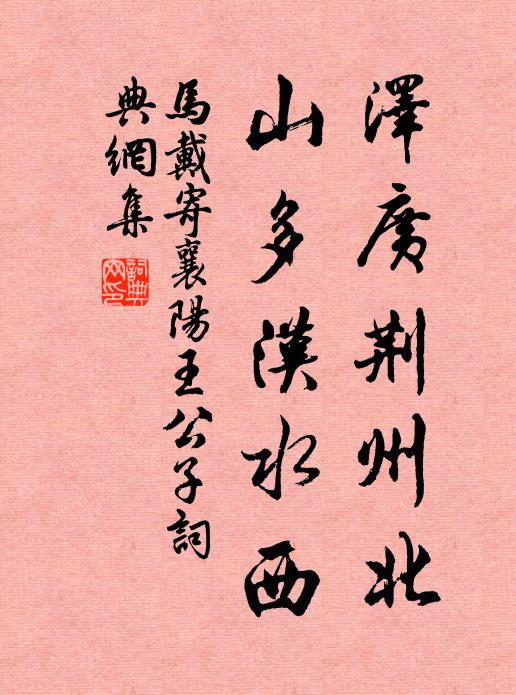 澤廣荆州北
山多漢水西
馬戴寄襄陽王公子詞
典網集
詞典
网印